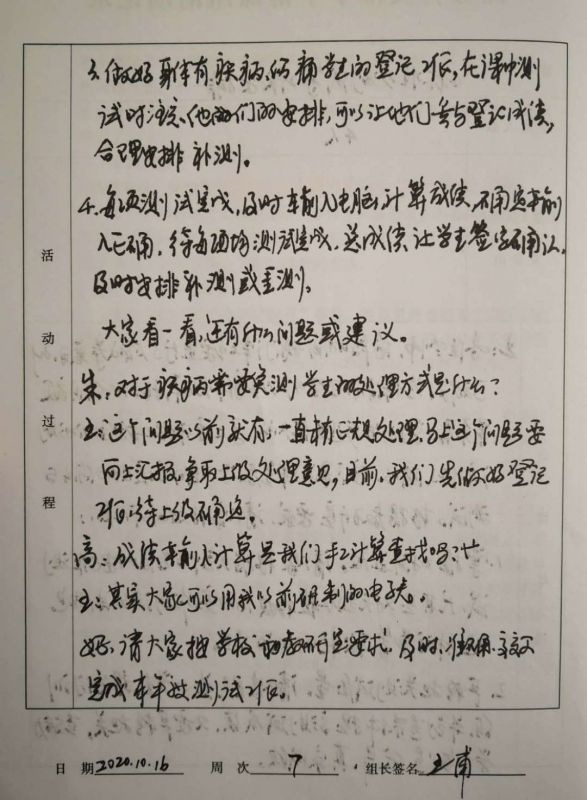 3.做好身体有疾病、伤病学生的登记工作,在课中测
试时注意他们的安排,可以让他们参与登记成绩,
合理安排补测。
4.每项测试完成,及时输入电脑,计算成绩,确定输
入正确,待每项均测试完成,总成绩让学生签字确认,
及时安排补测或重测。
大家看一看,还有什么问题或建议。
朱:对于疾病需要免测学生的处理方式是什么?
王:这个问题以前就有,一直有正规处理,马上这个问题要
向上汇报,争取上级处理意见,目前,我们先做好登记
工作,待上级确定。
高:成绩输入计算是我们手工计算查找吗?
王:其实大家可以用我以前研制的电子表。
好,请大家按学校和教研室要求,及时、准确、高效
完成本年级测试工作。
活
动
过
程
日 期 2020.10.16 周 次 7 组长签名 王